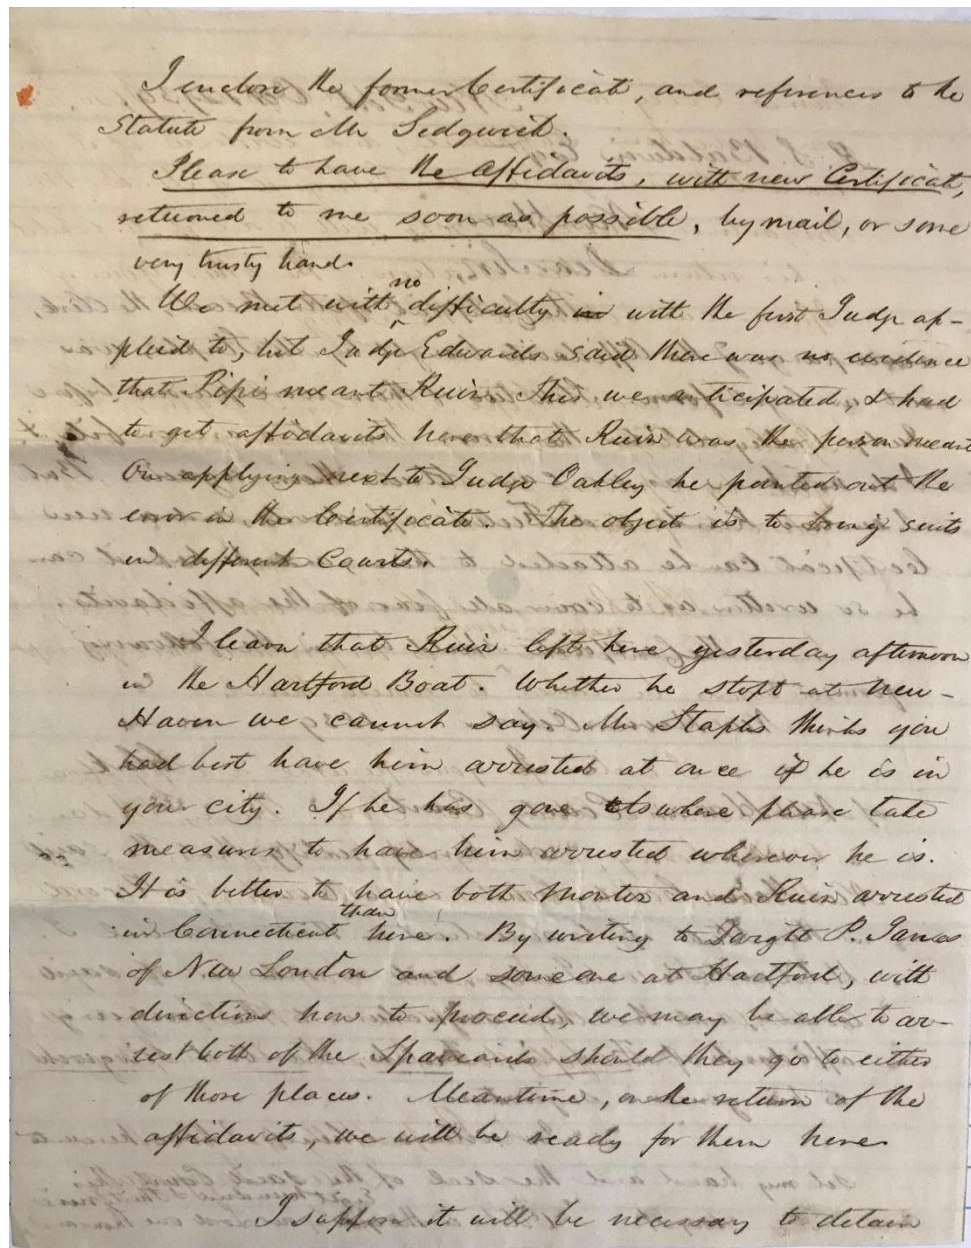 I enclose the former Certificate, and references to the
Statute from Mr Sedgwick.
Please to have the affidavits, with new Certificate,
returned to me soon as possible, by mail, or some
very trusty hand.
We met with no difficulty in with the first Judge ap-
plied to, but Judge Edwards said there was no evidence
that Pipi meant Ruiz. This we anticipated, & had
to get affidavits here that Ruiz was the person meant
On applying next to Judge Oakley he pointed out the
error in the Certificate. The object is to bring suits
in different Courts.
I learn that Ruiz left here yesterday afternoon
in the Hartford Boat. Whether he stopt at New-
Haven we cannot say. Mr Staples thinks you
had best have him arrested at once if he is in
your city. If he has gone elsewhere please take
measures to have him arrested wherever he is.
It is better to have both Montez and Ruiz arrested
in Connecticut than here. By writing to Dwight P. Janes
of New London and some one at Hartford, with
directions how to proceed, we may be able to ar-
rest both of the Spaniards should they go to either
of those places. Meantime, on the return of the
affidavits, we will be ready for them here.
I suppose it will be necessary to detain